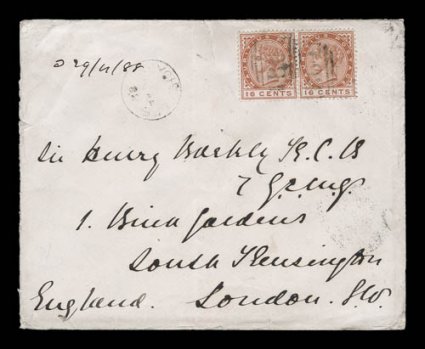 29/11/88
16 CENTS 16 CENTS
Sir Henry Barkly K.C.B
& G.C.M.G.
1. Bina Gardens
South Kensington
England. London. S.W.